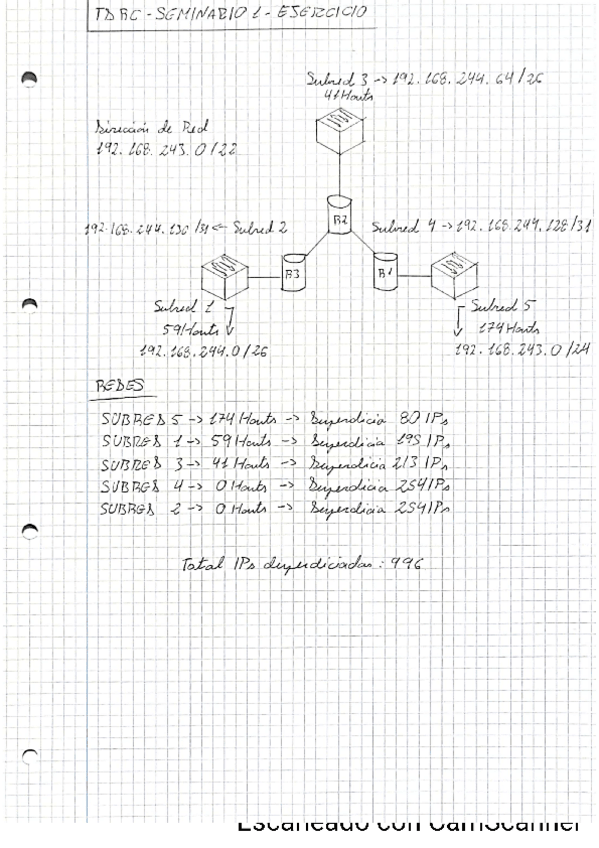 TDRC - SEMINARIO 1 - EJERCICIO
Subred 3 -> 192.168.244.64/26
41 Hosts
Dirección de Red
192.168.243.0/22
R2
192.168.244.130/31 <- Subred 2
Subred 4 -> 192.168.244.128/31
R3
R1
Subred 1
59 Hosts
192.168.244.0/26
Subred 5
174 Hosts
192.168.243.0/24
REDES
SUBRED 5 -> 174 Hosts -> Desperdicia 80 IPs
SUBRED 1 -> 59 Hosts -> Desperdicia 195 IPs
SUBRED 3 -> 41 Hosts -> Desperdicia 213 IPs
SUBRED 4 -> 0 Hosts -> Desperdicia 254 IPs
SUBRED 2 -> 0 Hosts -> Desperdicia 254 IPs
Total IPs desperdiciadas: 996
Escaneado con CamScanner